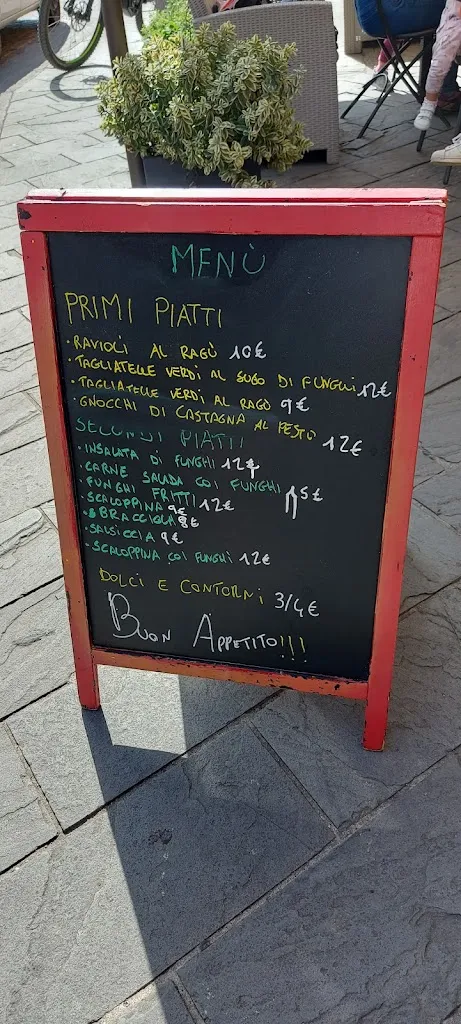 MENÙ
PRIMI PIATTI
• RAVIOLI AL RAGÙ 10€
• TAGLIATELLE VERDI AL SUGO DI FUNGHI 12€
• TAGLIATELLE VERDI AL RAGÙ 9€
• GNOCCHI DI CASTAGNA AL PESTO 12€
SECONDI PIATTI
• INSALATA DI FUNGHI 12€
• CARNE SALADA COI FUNGHI 15€
• FUNGHI FRITTI 12€
• SCALOPPINA 9€
• BRACCIOLA 8€
• SALSICCIA 9€
• SCALOPPINA COI FUNGHI 12€
DOLCI E CONTORNI 3/4€
BUON APPETITO!!!